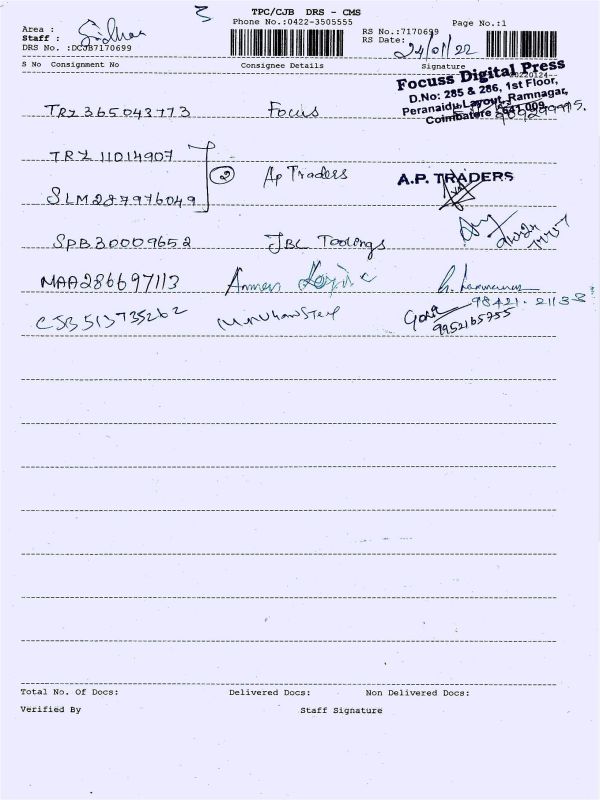 3
TPC/CJB DRS - CMS
Phone No.:0422-3505555
Page No.:1
Area :
Staff : Sridhar
DRS No. :DCJB7170699
RS No.:7170699
RS Date:
24/01/22
S No Consignment No Consignee Details Signature
Focuss Digital Press
D.No: 285 & 286, 1st Floor,
Peranaidu Layout, Ramnagar,
Coimbatore - 641 009
TRZ365043773 Focus
TRZ 11014907
2 Ap Traders A.P. TRADERS
SLM287976049
SPB30009652 JBC Toolings
MAA286697113
98421-21133
CJB513735262
9952165755
Total No. Of Docs: Delivered Docs: Non Delivered Docs:
Verified By Staff Signature